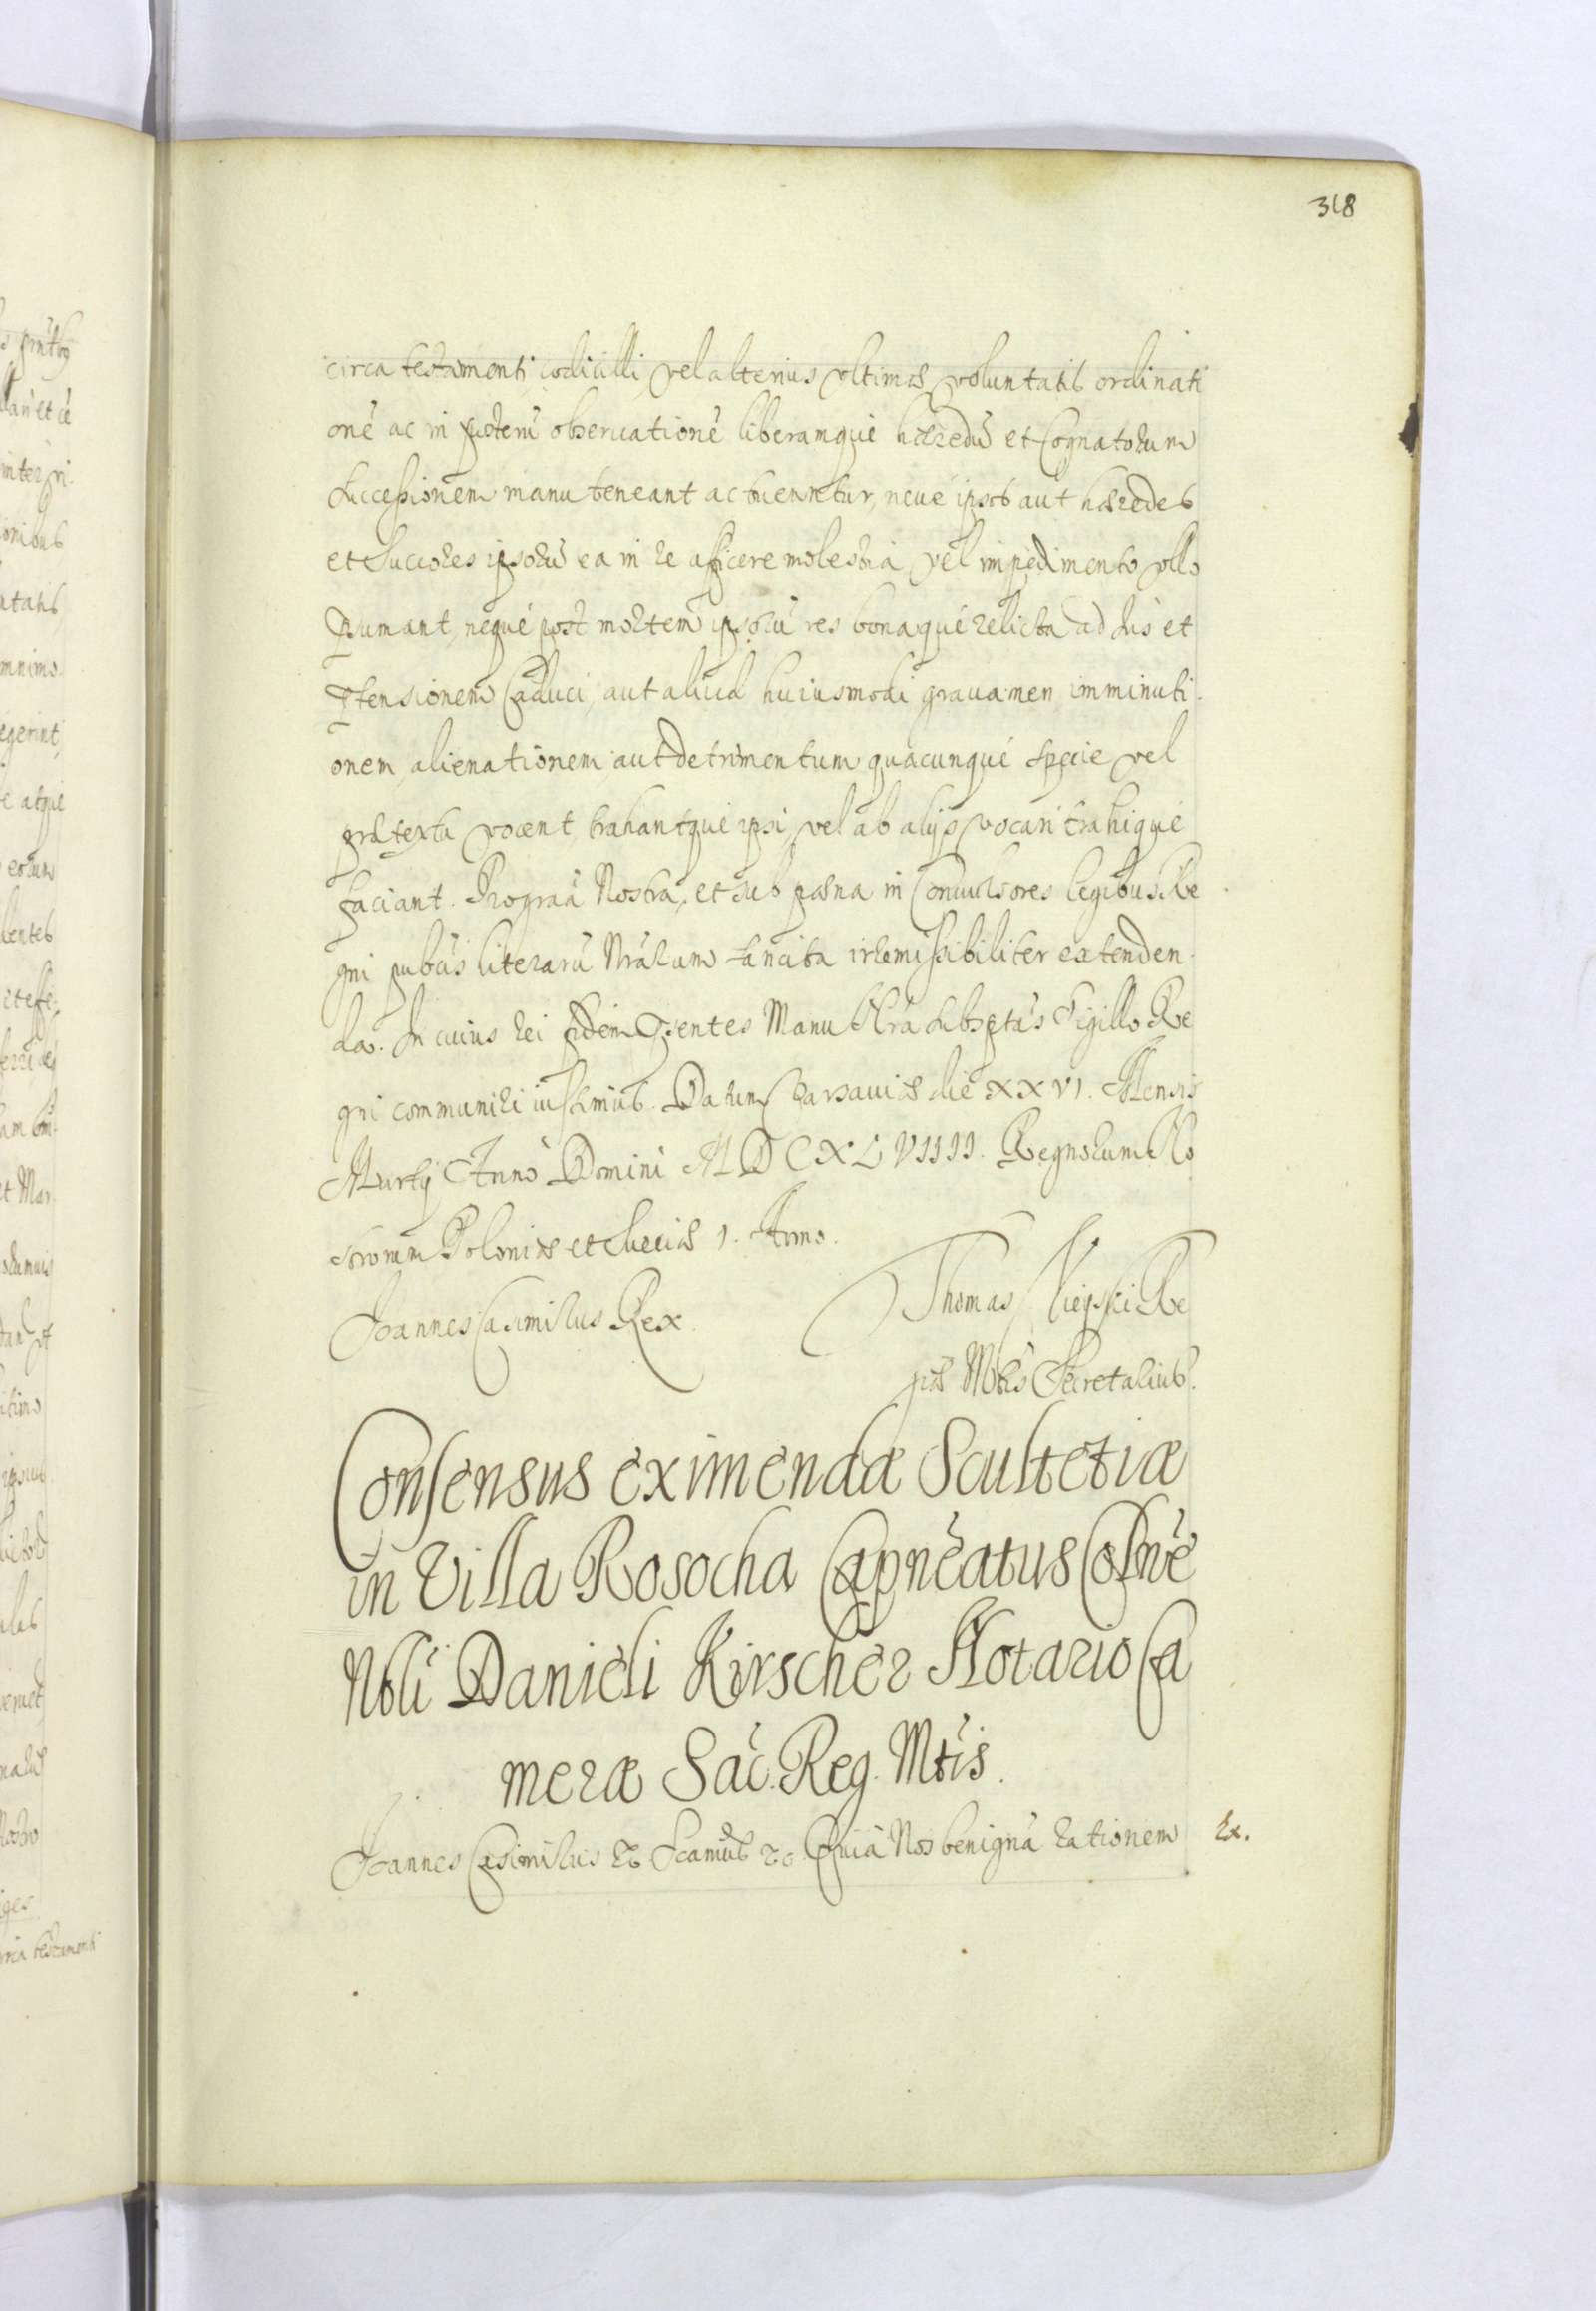 318
circa testamenti, codicilli, vel alterius vltimæ voluntatis ordinati
onē ac in posterū obseruationē liberamque hæredū et Cognatorum
Successionem manuteneant ac tueantur, neue ipsos aut hæredes
et Succores ipsorū ea in re afficere molestia vel impedimento vllo
psumant, neque post mortem ipsorū res bonaque relicta ad Ius et
ptensionem Caduci, aut aliud huiusmodi grauamen imminuti
onem, alienationem, aut detrimentum quacunque specie vel
prætextu vocent, trahantque ipsi, vel ab alijs vocari trahique
faciant. Pro graā Nostra, et sub pæna in Conuulsores legibus Re
gni pubcis literarū Nrārum sancita irremissibiliter extenden
da. In cuius rei fidem pntes Manu Nrā subsptas Sigillo Re
gni communiri iussimus. Datum Varsauiæ die XXVI. Mensis
Martij Anno Domini MDCXLVIIII. Regnorum No
strorum Poloniæ et Sueciæ 1. Anno.
Joannes Casimirus Rex. Thomas Re
giæ Mtis Secretarius.
Consensus eximendæ Scultetiæ
in Villa Rosocha Capnēatus Colnē
Nbli Danieli Kirscher Notario Ca
meræ Sac. Reg. Mtis.
Joannes Casimirus &c Scamus &c Quia Nos benignā rationem Ex.